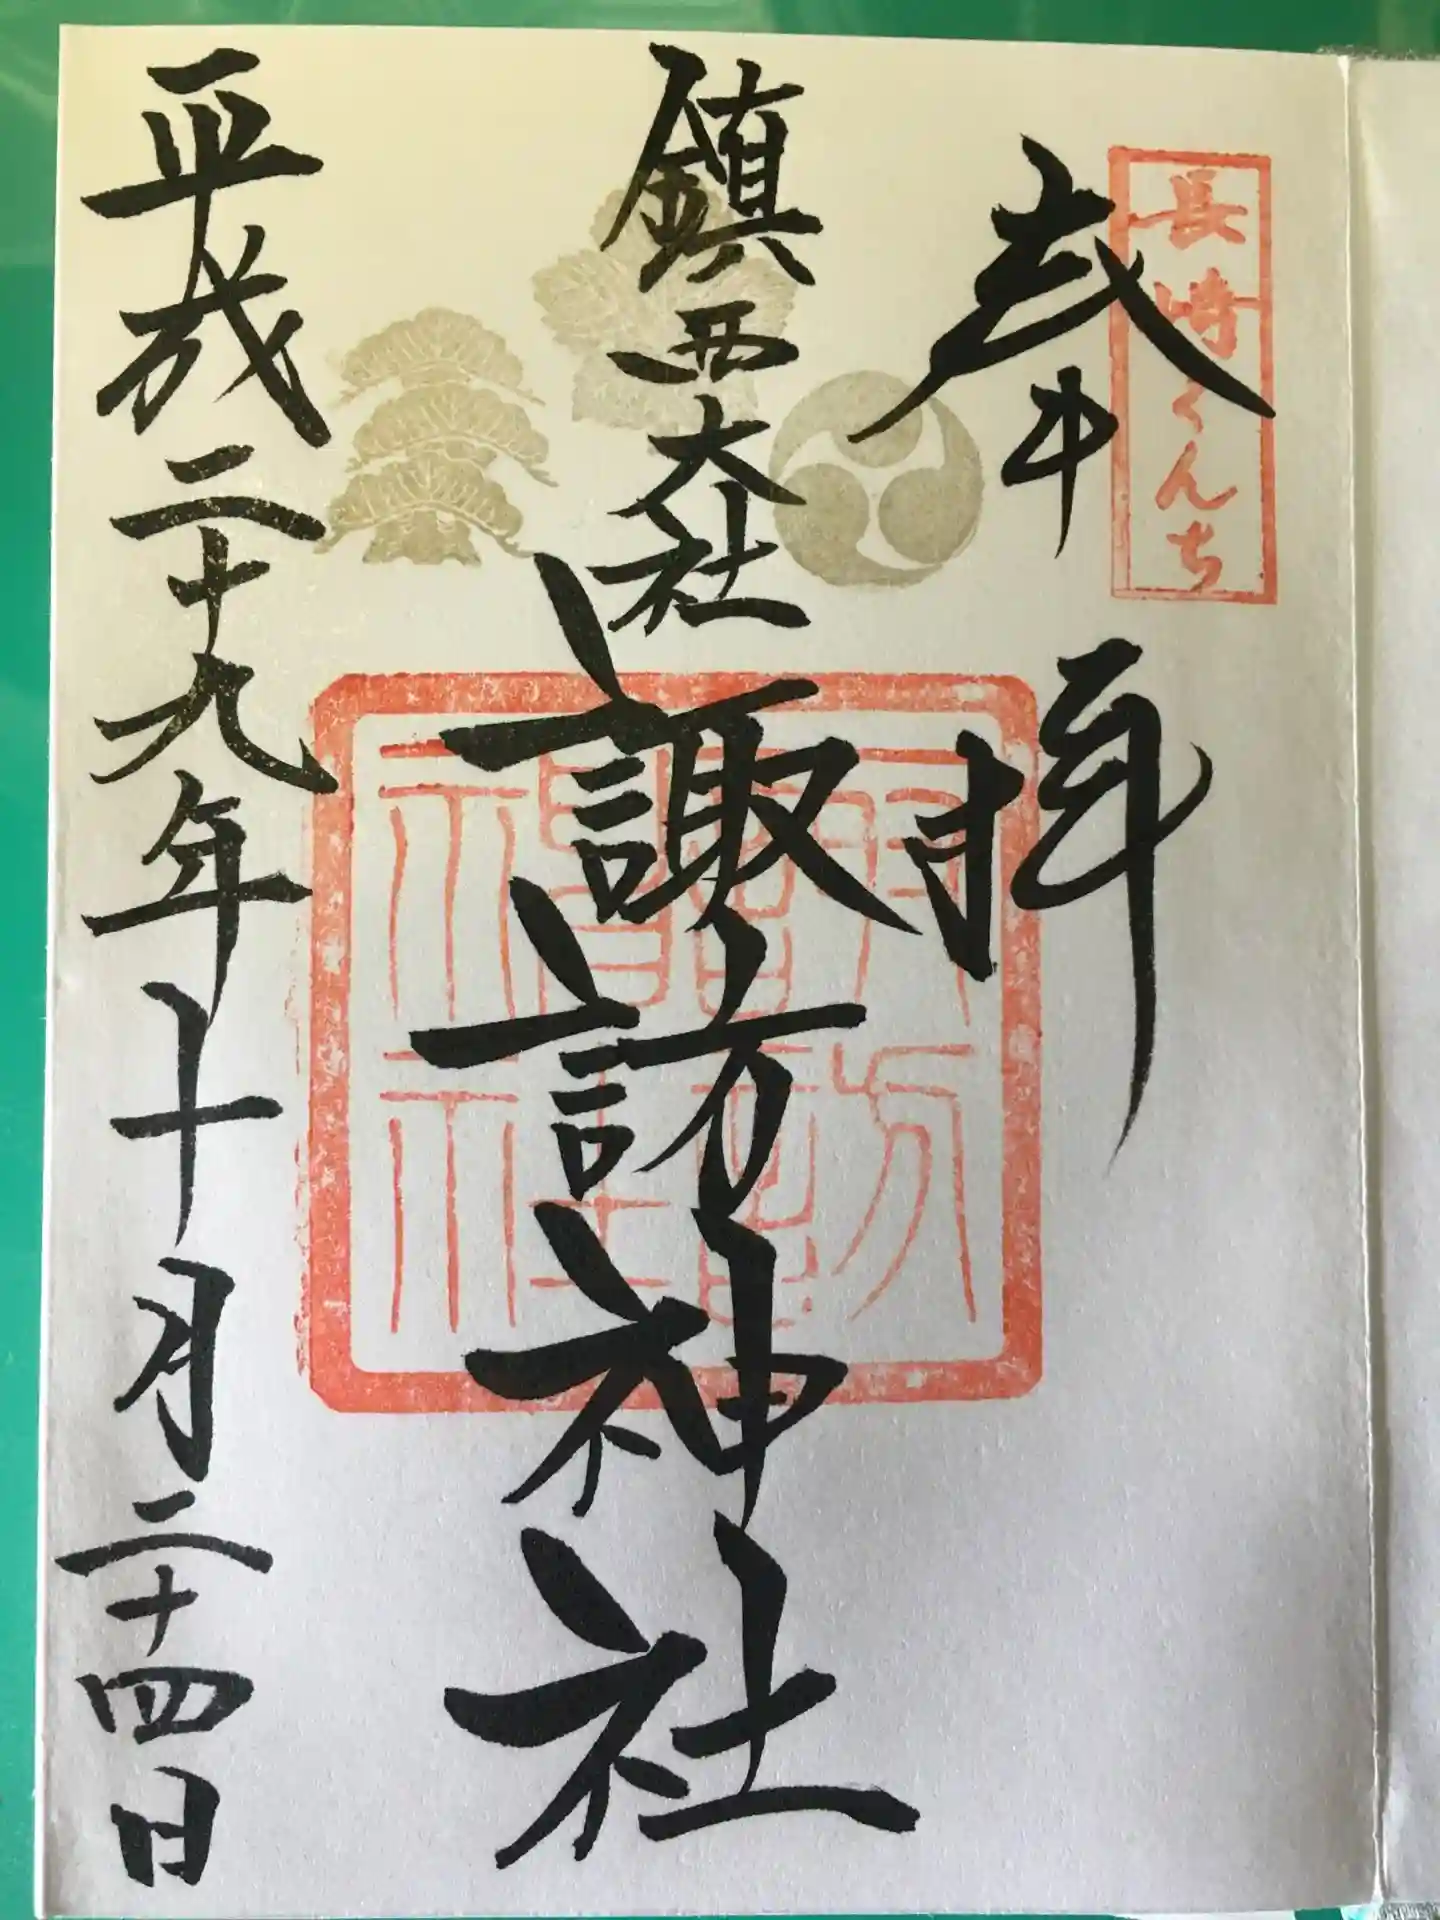 長崎くんち
奉拝
鎮西大社 諏訪神社
平成二十九年十月二十四日